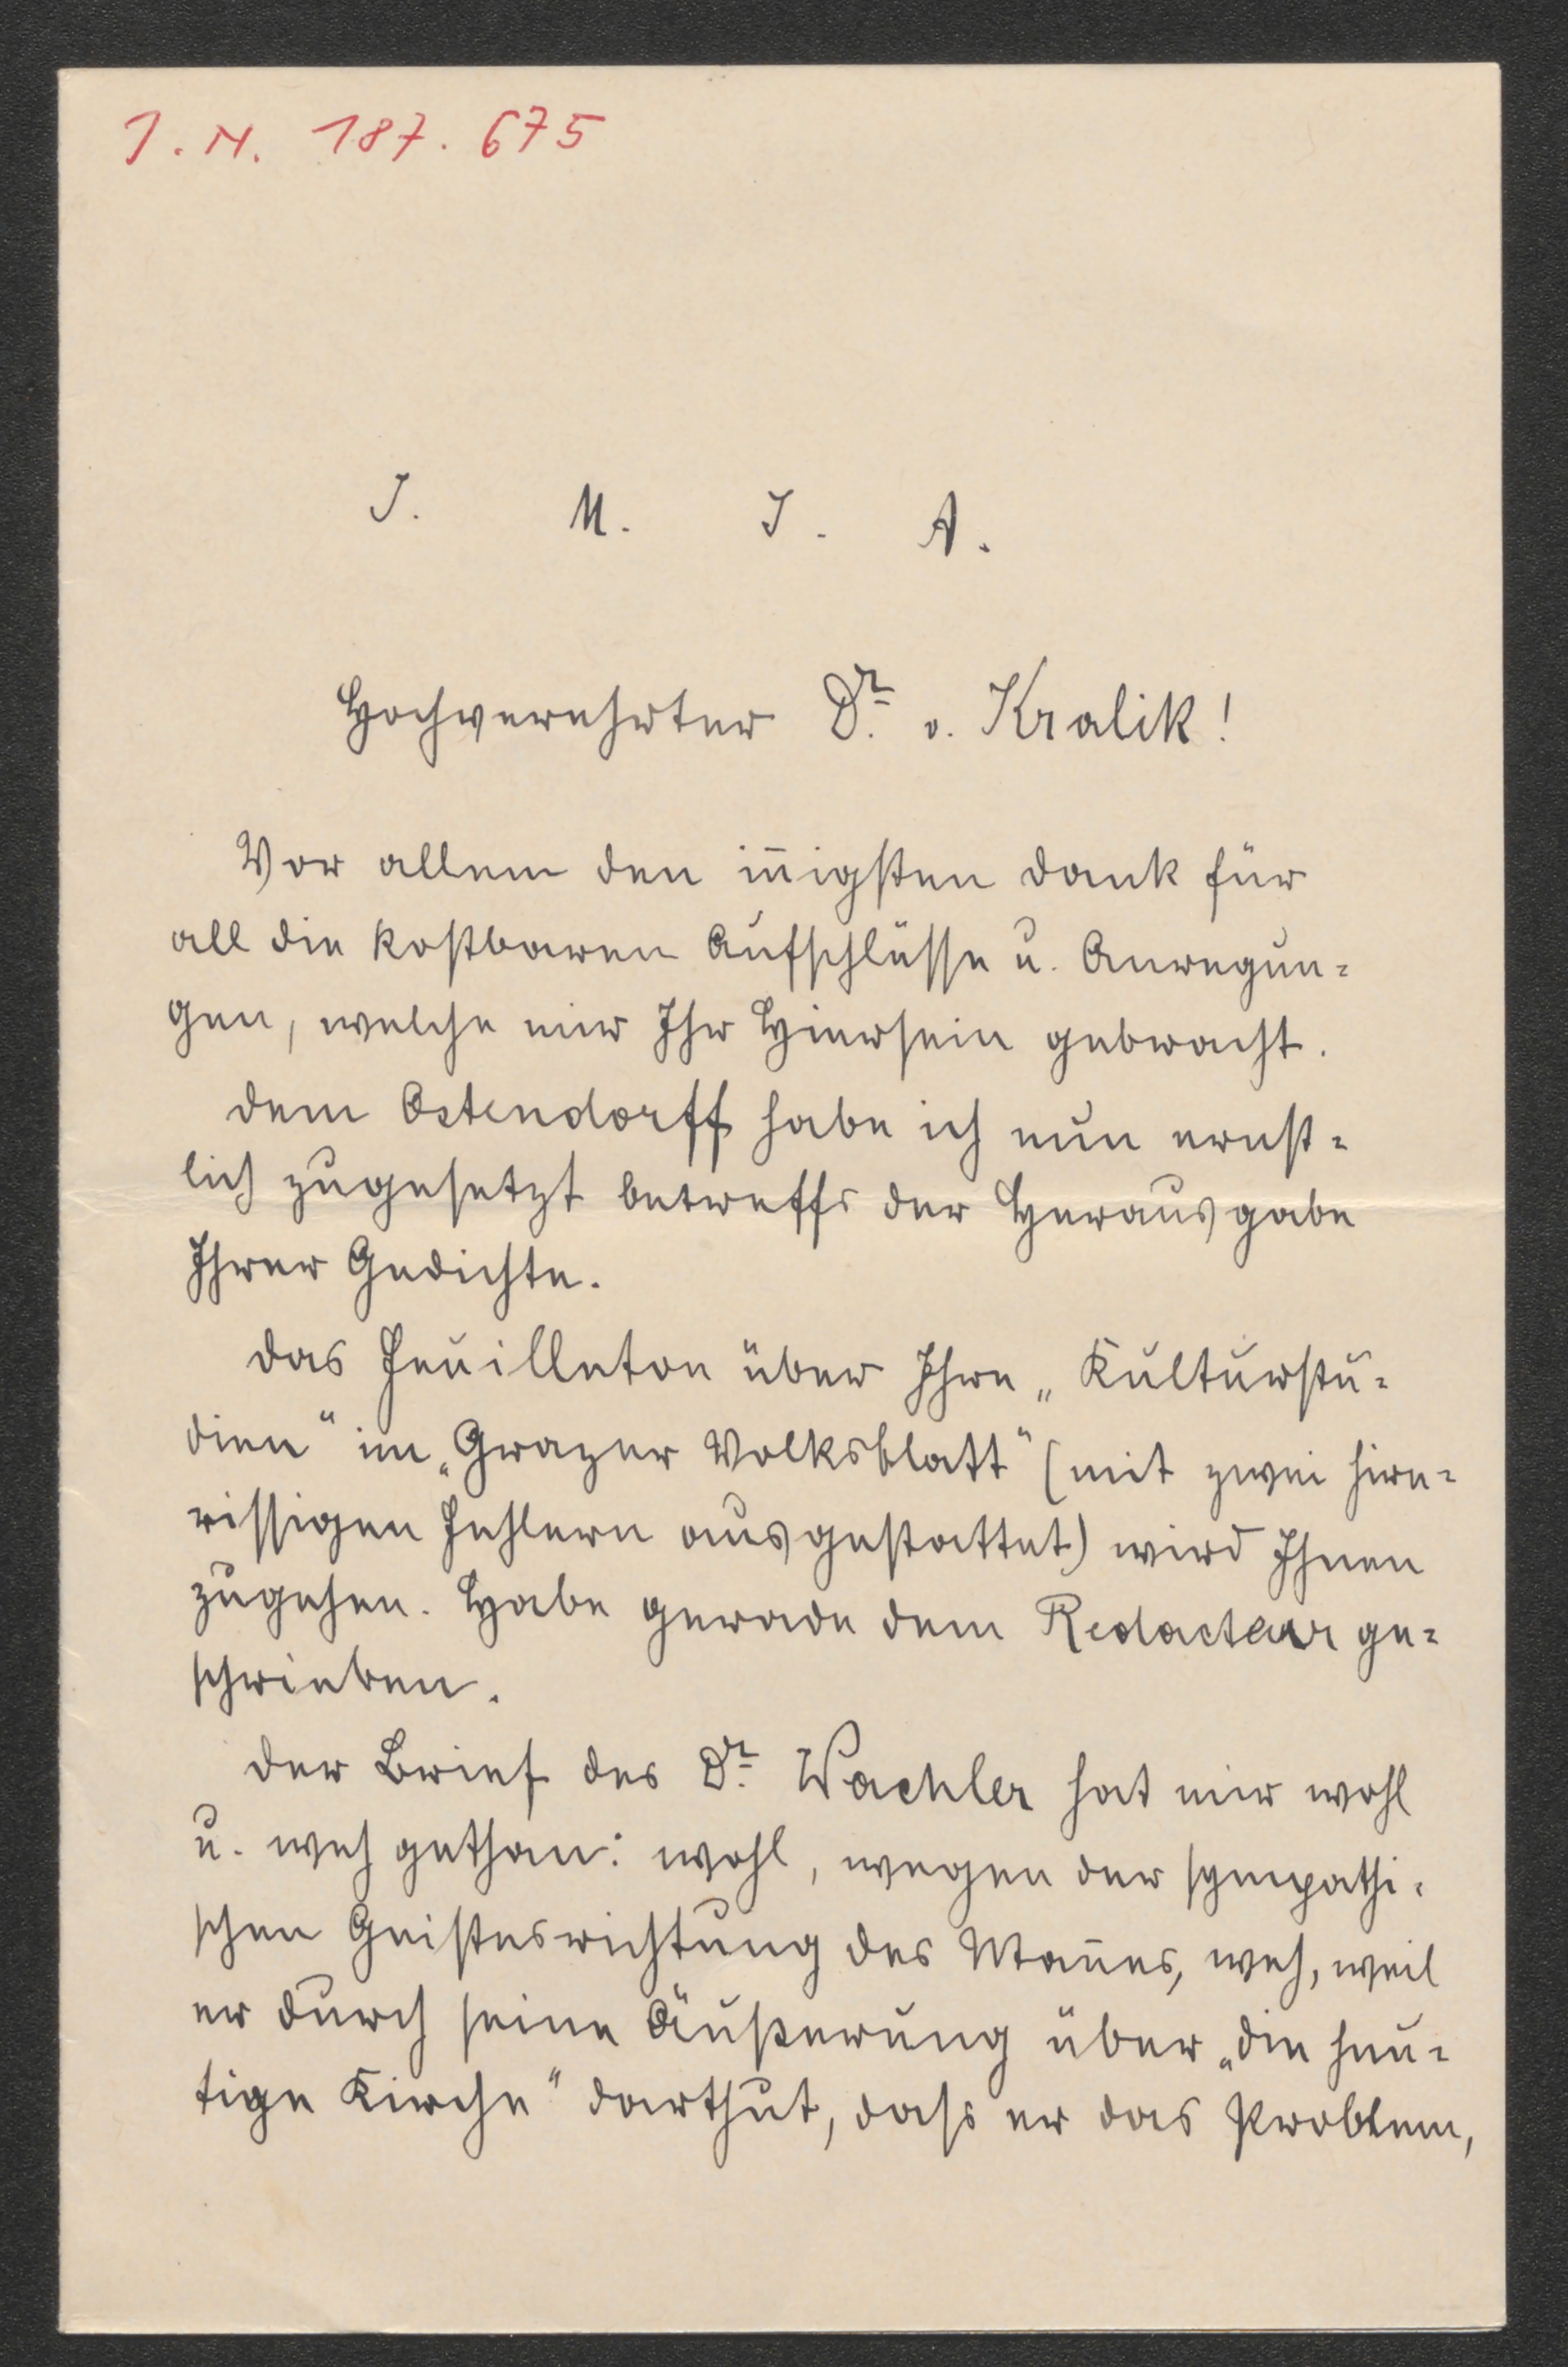 J. N. 187. 675
J. M. J. A.
Hochverehrter Dr. v. Kralik!
Vor allem den in̄igsten Dank für
all die kostbaren Aufschlüsse u. Anregun-
gen, welche mir Ihr Hiersein gebracht.
Dem Ostendorff habe ich nun ernst-
lich zugesetzt betreffs der Herausgabe
Ihrer Gedichte.
Das Feuilleton über Ihre „Kulturstu-
dien“ im „Grazer Volksblatt“ (mit zwei hirn-
rissigen Fehlern ausgestattet) wird Ihnen
zugehen. Habe gerade dem Redacteur ge-
schrieben.
Der Brief des Dr. Wachler hat mir wohl
u. weh gethan: wohl, wegen der sympathi-
schen Geistesrichtung des Man̄es, weh, weil
er durch seine Äußerung über „die heu-
tige Kirche“ darthut, dass er das Problem,